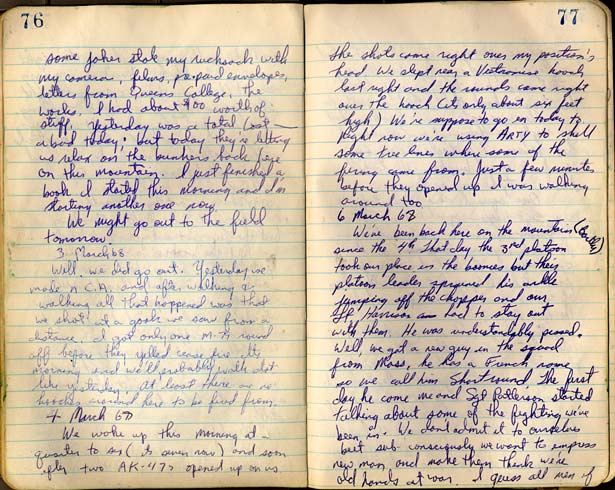 76
some joker stole my rucksack with
my camera, films, pre-paid envelopes,
letters from Queens College. The
works. I had about $100 worth of
stuff. Yesterday was a total lost
a bad today, but today they're letting
us relax on the bunkers back here
on this mountain. I just finished a
book I started this morning and I'm
starting another one now.
We might go out to the field
tomorrow.
3 March 68
Well, we did go out. Yesterday we
made a C.A. and after walking &
walking all that happened was that
we shot at a gook we saw from a
distance. I got only one M-79 round
off before they yelled cease fire. It's
morning and we'll probably walk alot
like yesterday. At least there are no
hooches around here to be fired from.
4 March 68
We woke up this morning at
quarter to six (its seven now) and soon
after two AK-47s opened up on us.
77
The shots came right over my position's
head. We slept near a Vietnamese hooch
last night and the rounds came right
over the hooch (its only about six feet
high) We're suppose to go in today to
Right now we're using ARTY to shell
some tree lines where some of the
firing came from. Just a few minutes
before they opened up I was walking
around too.
6 March 68
We've been back here on the mountain
since the 4th. That day the 3rd platoon
took our place in the boonies but their
platoon leader sprained his ankle
jumping off the chopper and our
Lt Harrison had to stay out
with them. He was understandably pissed.
Well, we got a new guy in the squad
from Mass, he has a French name
so we call him Shortround. The first
day he come me and Sgt Patterson started
talking about some of the fighting we've
been in. We don't admit it to ourselves
but sub-consciously we want to impress
new man, and make them think we're
old hands at war. I guess all men of